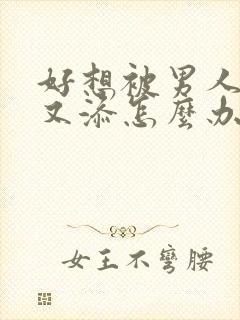 好想被男人
又添怎麼办
女王不彎腰